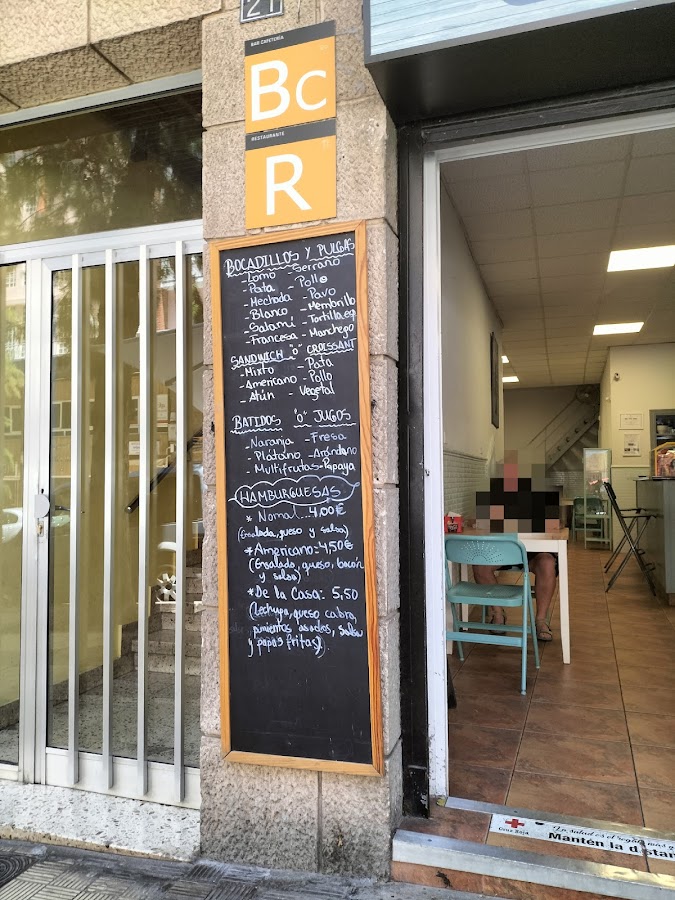 21
BAR CAFETERÍA
BC
RESTAURANTE
R
BOCADILLOS Y PULGAS
- Lomo - Serrano
- Pata - Pollo
- Mechada - Pavo
- Blanco - Membrillo
- Salami - Tortilla esp
- Francesa - Manchego
SANDWICH "O" CROISSANT
- Mixto - Pata
- Americano - Pollo
- Atún - Vegetal
BATIDOS "O" JUGOS
- Naranja - Fresa
- Plátano - Arándano
- Multifrutas - Papaya
HAMBURGUESAS
* Nomal... 4,00€
(Ensalada, queso y salsa)
* Americano = 4,50€
(Ensalada, queso, bacón
y salsa)
* De la Casa: 5,50
(Lechuga, queso cabra,
pimientos asados, salsa
y papas fritas)
Cruz Roja
"Tu salud es
Mantén la distan